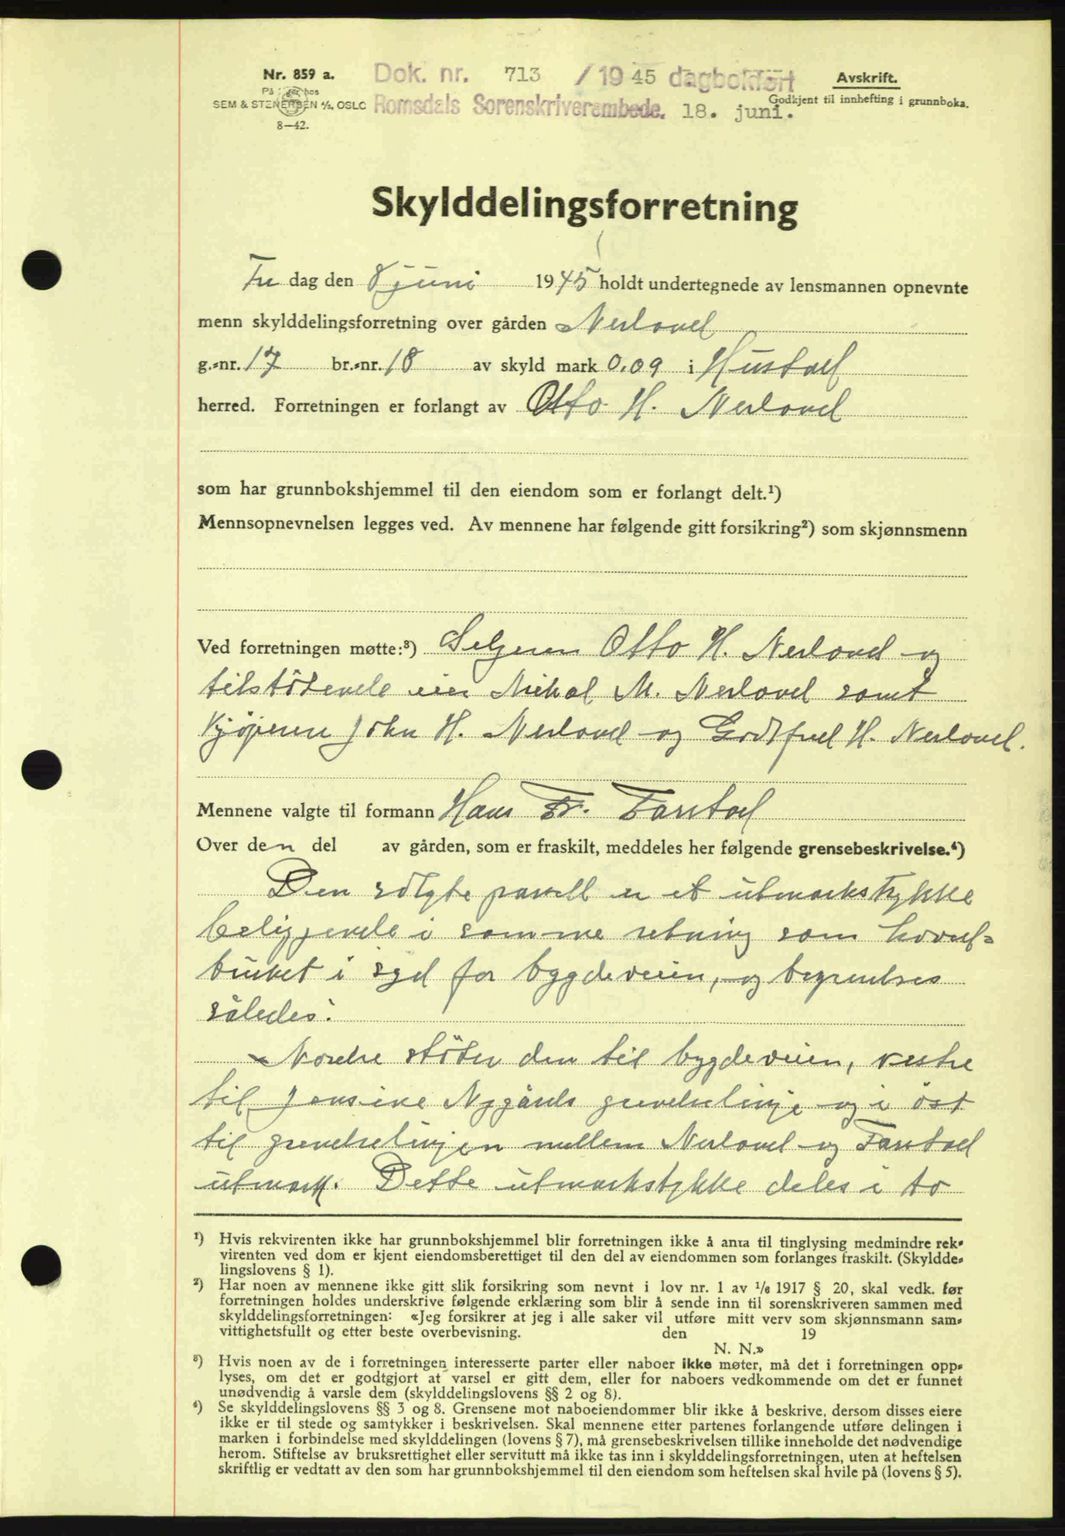 Nr. 859 a.
På lager hos
SEM & STENERSEN A/S, OSLO
8—42.
Dok. nr. 713 / 1945 dagbokført
Romsdals Sorenskriverembede. 18. juni.
Avskrift.
Godkjent til innhefting i grunnboka.
Skylddelingsforretning
Fre dag den 8 juni 1945 holdt undertegnede av lensmannen opnevnte
menn skylddelingsforretning over gården Nerland
g.-nr. 17 br.-nr. 18 av skyld mark 0.09 i Hustad
herred. Forretningen er forlangt av Otto H. Nerland
som har grunnbokshjemmel til den eiendom som er forlangt delt.¹)
Mennsopnevnelsen legges ved. Av mennene har følgende gitt forsikring²) som skjønnsmenn
Ved forretningen møtte:³) Selgeren Otto H. Nerland og
tilstøtende eier Mikal M. Nerland samt
kjøperne John H. Nerland og Godtfred H. Nerland.
Mennene valgte til formann Hans Fr. Farstad
Over den del av gården, som er fraskilt, meddeles her følgende grensebeskrivelse.⁴)
Den solgte parsell er et utmarkstykke
beliggende i samme retning som hoved-
bruket i syd for bygdeveien, og begrenses
således:
Nordre støter den til bygdeveien, vestre
til Jensine Nygårds grenselinje og i øst
til grenselinjen mellem Nerland og Farstad
utmark. Dette utmarkstykke deles i to
¹) Hvis rekvirenten ikke har grunnbokshjemmel blir forretningen ikke å anta til tinglysing medmindre rek-
virenten ved dom er kjent eiendomsberettiget til den del av eiendommen som forlanges fraskilt. (Skyldde-
lingslovens § 1).
²) Har noen av mennene ikke gitt slik forsikring som nevnt i lov nr. 1 av 1/6 1917 § 20, skal vedk. før
forretningen holdes underskrive følgende erklæring som blir å sende inn til sorenskriveren sammen med
skylddelingsforretningen: «Jeg forsikrer at jeg i alle saker vil utføre mitt verv som skjønnsmann sam-
vittighetsfullt og etter beste overbevisning. den 19
N. N.»
³) Hvis noen av de i forretningen interesserte parter eller naboer ikke møter, må det i forretningen opp-
lyses, om det er godtgjort at varsel er gitt dem, eller for naboers vedkommende om det er funnet
unødvendig å varsle dem (skylddelingslovens §§ 2 og 8).
⁴) Se skylddelingslovens §§ 3 og 8. Grensene mot naboeiendommer blir ikke å beskrive, dersom disses eiere
ikke er til stede og samtykker i beskrivelsen. Skal mennene etter partenes forlangende utføre delingen i
marken i forbindelse med skylddelingen (lovens § 7), må grensebeskrivelsen tillike inneholde det nødvendige
herom. Stiftelse av bruksrettighet eller servitutt må ikke tas inn i skylddelingsforretningen, uten at heftelsen
skriftlig er vedtatt av den som har grunnbokshjemmel til den eiendom som heftelsen skal hvile på (lovens § 5).